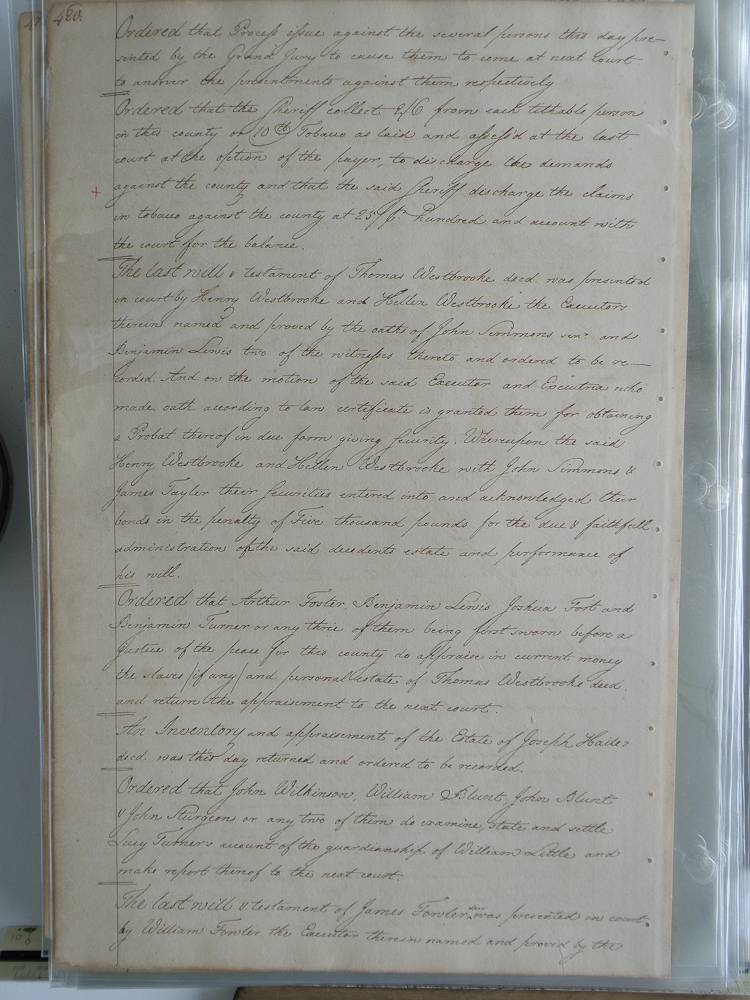 420.
Ordered that Process issue against the several persons this day pre-
sented by the Grand Jury to cause them to come at next court
to answer the presentments against them respectively
Ordered that the Sheriff collect 2/6 from each tithable person
in this county or 10 lb Tobacco as laid and assess'd at the last
court at the option of the payer, to discharge the demands
against the county and that the said Sheriff discharge the claims
in tobacco against the county at 25/ pr hundred and account with
the court for the balance.
The last will & testament of Thomas Westbrooke decd. was presented
in court by Henry Westbrooke and Hellen Westbrooke the Executors
therein named and proved by the oaths of John Simmons senr and
Benjamin Lewis two of the witnesses thereto and ordered to be re-
corded. And on the motion of the said Executor and Executrix who
made oath according to law certificate is granted them for obtaining
a Probat thereof in due form giving security. Whereupon the said
Henry Westbrooke and Hellen Westbrooke with John Simmons &
James Tayler their Securities entered into and acknowledged their
bonds in the penalty of Five thousand pounds for the due & faithfull
administration of the said decedents estate and performance of
his will.
Ordered that Arthur Foster, Benjamin Lewis Joshua Fort and
Benjamin Turner or any three of them being first sworn before a
Justice of the peace for this county do appraise in current money
the slaves (if any) and personal estate of Thomas Westbrooke decd.
and return the appraisement to the next court.
An Inventory and appraisement of the Estate of Joseph Hailes
decd. was this day returned and ordered to be recorded.
Ordered that John Wilkinson, William Blunt, John Blunt
& John Sturgeon or any two of them do examine, state and settle
Lucy Turner's account of the guardianship of William Little and
make report thereof to the next court.
The last will & testament of James Fowler decd was presented in court
by William Fowler the Executor therein named and proved by the